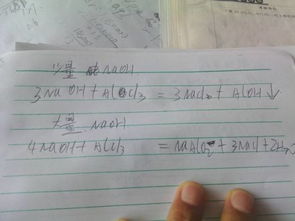 少量 NaOH
3NaOH + AlCl3 = 3NaCl + AlOH↓
大量 NaOH
4NaOH + AlCl3 = NaAlO2 + 3NaCl + 2H2